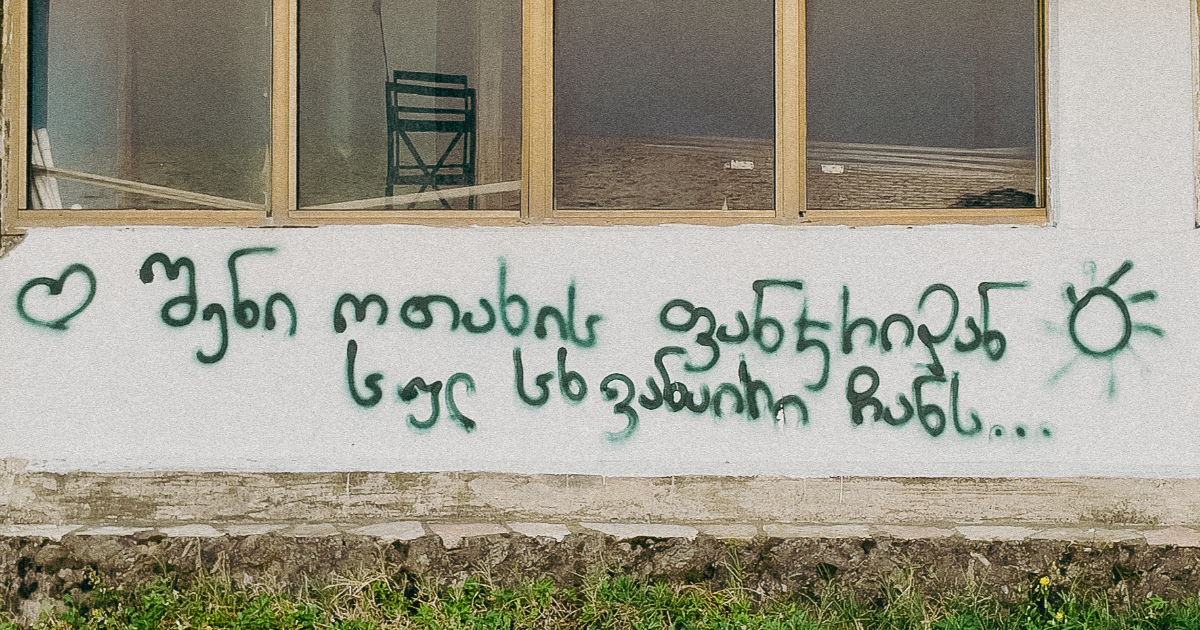 შენი ოთახის ფანჯრიდან
სულ სხვანაირი ჩანს...